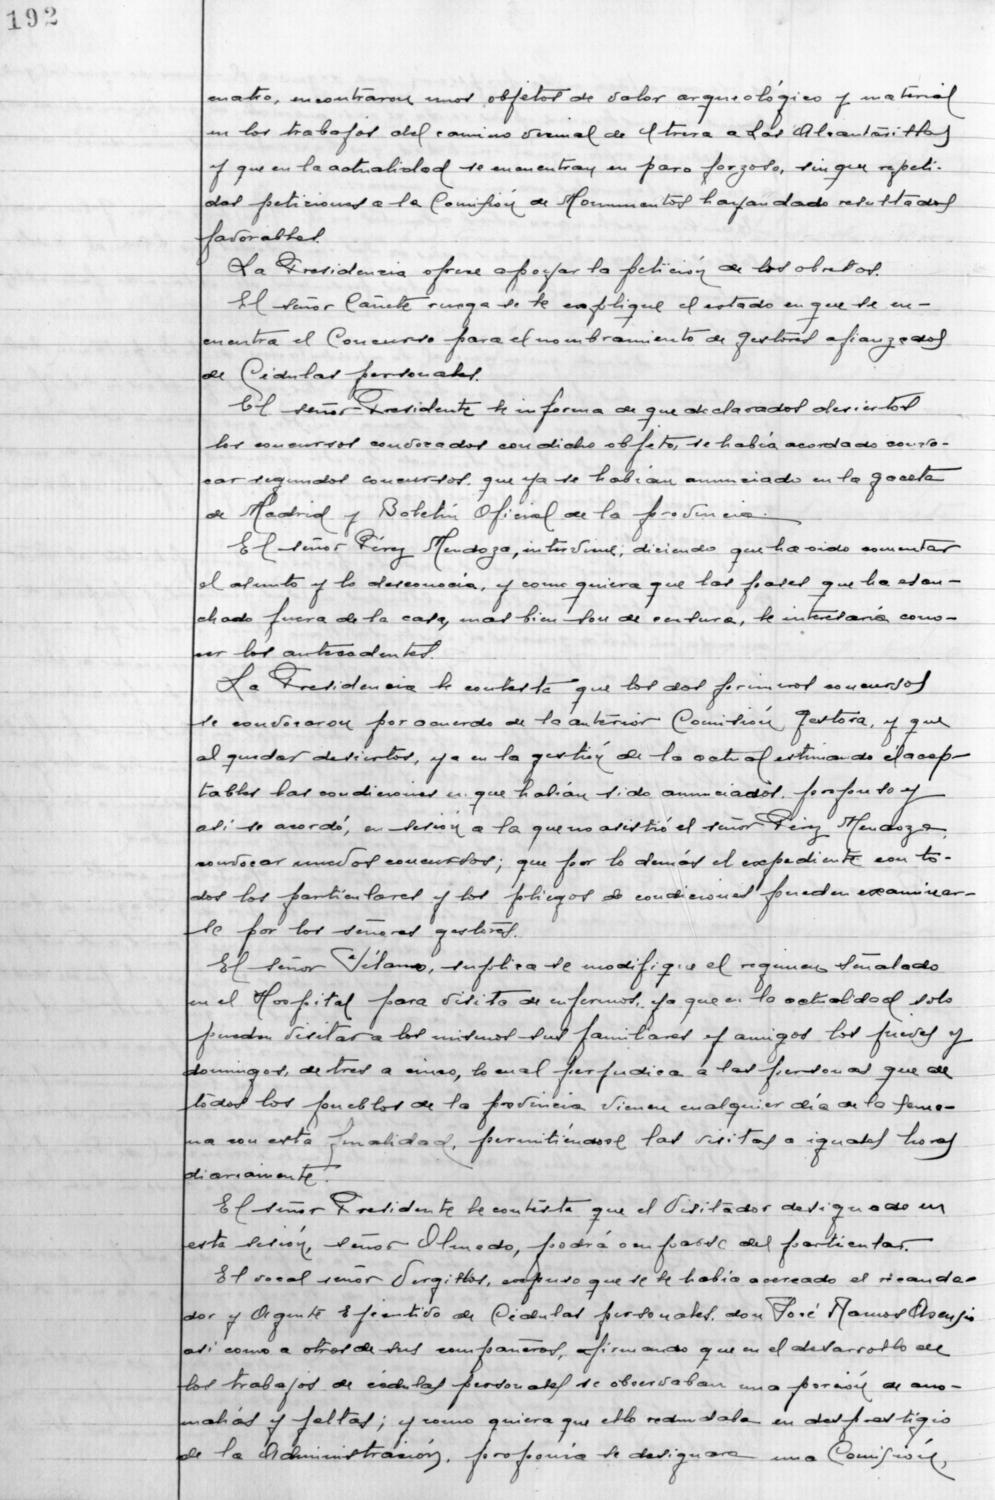 192
cuatro, encontraron unos objetos de valor arqueológico y material
en los trabajos del camino vecinal de Utrera a Las Alcantarillas
y que en la actualidad se encuentran en paro forzoso, sin que repeti-
das peticiones a la Comisión de Monumentos hayan dado resultados
favorables.
La Presidencia ofrece apoyar la petición de los obreros.
El señor Cañete ruega se le explique el estado en que se en-
cuentra el Concurso para el nombramiento de gestores afianzados
de Cédulas personales.
El señor Presidente le informa de que declarados desiertos
los concursos convocados con dicho objeto, se había acordado convo-
car segundos concursos, que ya se habían anunciado en la Gaceta
de Madrid y Boletín Oficial de la provincia.
El señor Pérez Mendoza, interviene; diciendo que ha oido comentar
el asunto y lo desconocía, y como quiera que las frases que ha escu-
chado fuera de la casa, mas bien son de censura, le interesaría cono-
cer los antecedentes.
La Presidencia le contesta que los dos primeros concursos
se convocaron por acuerdo de la anterior Comisión Gestora, y que
al quedar desiertos, ya en la gestión de la actual estimando
tables las condiciones en que habían sido anunciados, propuso y
así se acordó, en sesión a la que no asistió el señor Pérez Mendoza,
convocar nuevos concursos; que por lo demás el expediente con to-
dos los particulares y los pliegos de condiciones pueden examinar-
se por los señores gestores.
El señor Vélano, suplica se modifique el regimen señalado
en el Hospital para visita de enfermos, ya que en la actualidad solo
pueden visitar a los mismos sus familiares y amigos los jueves y
domingos, de tres a cinco, lo cual perjudica a las personas que de
todos los pueblos de la provincia vienen cualquier día de la sema-
na con esta finalidad, permitiéndose las visitas a iguales horas
diariamente.
El señor Presidente le contesta que el Visitador designado en
esta sesión, señor Olmedo, podrá ocuparse del particular.
El vocal señor Vergillos, expuso que se le había acercado el recauda-
dor y Agente Ejecutivo de Cédulas personales, don José Ramos Asensio
así como a otros de sus compañeros, afirmando que en el desarrollo de
los trabajos de cédulas personales se observaban una porción de ano-
malías y faltas; y como quiera que ello redundaba en desprestigio
de la Administración, proponía se designara una Comisión,